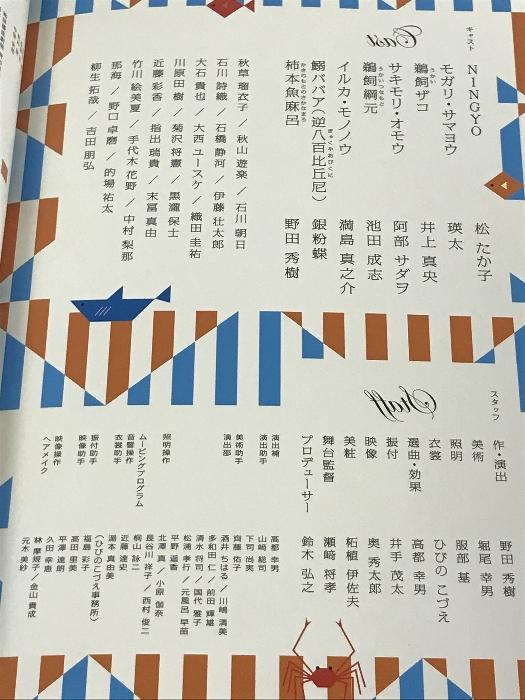 キャスト
Cast
NINGYO 松 たか子
モガリ・サマヨウ 瑛太
鵜飼ザコ 井上 真央
うかい
サキモリ・オモウ 阿部 サダヲ
鵜飼綱元 池田 成志
うかいつなもと
イルカ・モノノウ 満島 真之介
鰯ババア(逆八百比丘尼) 銀粉蝶
ぎゃくやおびくに
柿本魚麻呂 野田 秀樹
かきのもとのさかなまろ
秋草 瑠衣子/秋山 遊楽/石川 朝日
石川 詩織/石橋 静河/伊藤 壮太郎
大石 貴也/大西 ユースケ/織田 圭祐
川原田 樹/菊沢 将憲/黒瀧 保士
近藤 彩香/指出 瑞貴/末冨 真由
竹川 絵美夏/手代木 花野/中村 梨那
那海/野口 卓磨/的場 祐太
柳生 拓哉/吉田 朋弘
スタッフ
Staff
作・演出 野田 秀樹
美術 堀尾 幸男
照明 服部 基
衣裳 ひびの こづえ
選曲・効果 高都 幸男
振付 井手 茂太
映像 奥 秀太郎
美粧 柘植 伊佐夫
舞台監督 瀬﨑 将孝
プロデューサー 鈴木 弘之
演出補 高都 幸男
演出助手 山崎 総司
下司 尚実
美術助手 齋藤 佑子
演出部 酒井 ちはる/川嶋 清美
多和田 仁/前田 輝雄
清水 将司/国代 雅子
松浦 孝行/元風呂 早苗
平野 遥香
照明操作 北澤 真/小原 伽奈
長谷川 祥子/西村 俊二
ムービングプログラム 桐山 詠二
音響操作 近藤 達史
衣裳助手 湯本 真由美
(ひびのこづえ事務所)
振付助手 福島 彩子
映像助手 高田 里美
平澤 達朗
映像操作 久田 幸恵
ヘアメイク 林 摩規子/金山 貴成
元木 美紗